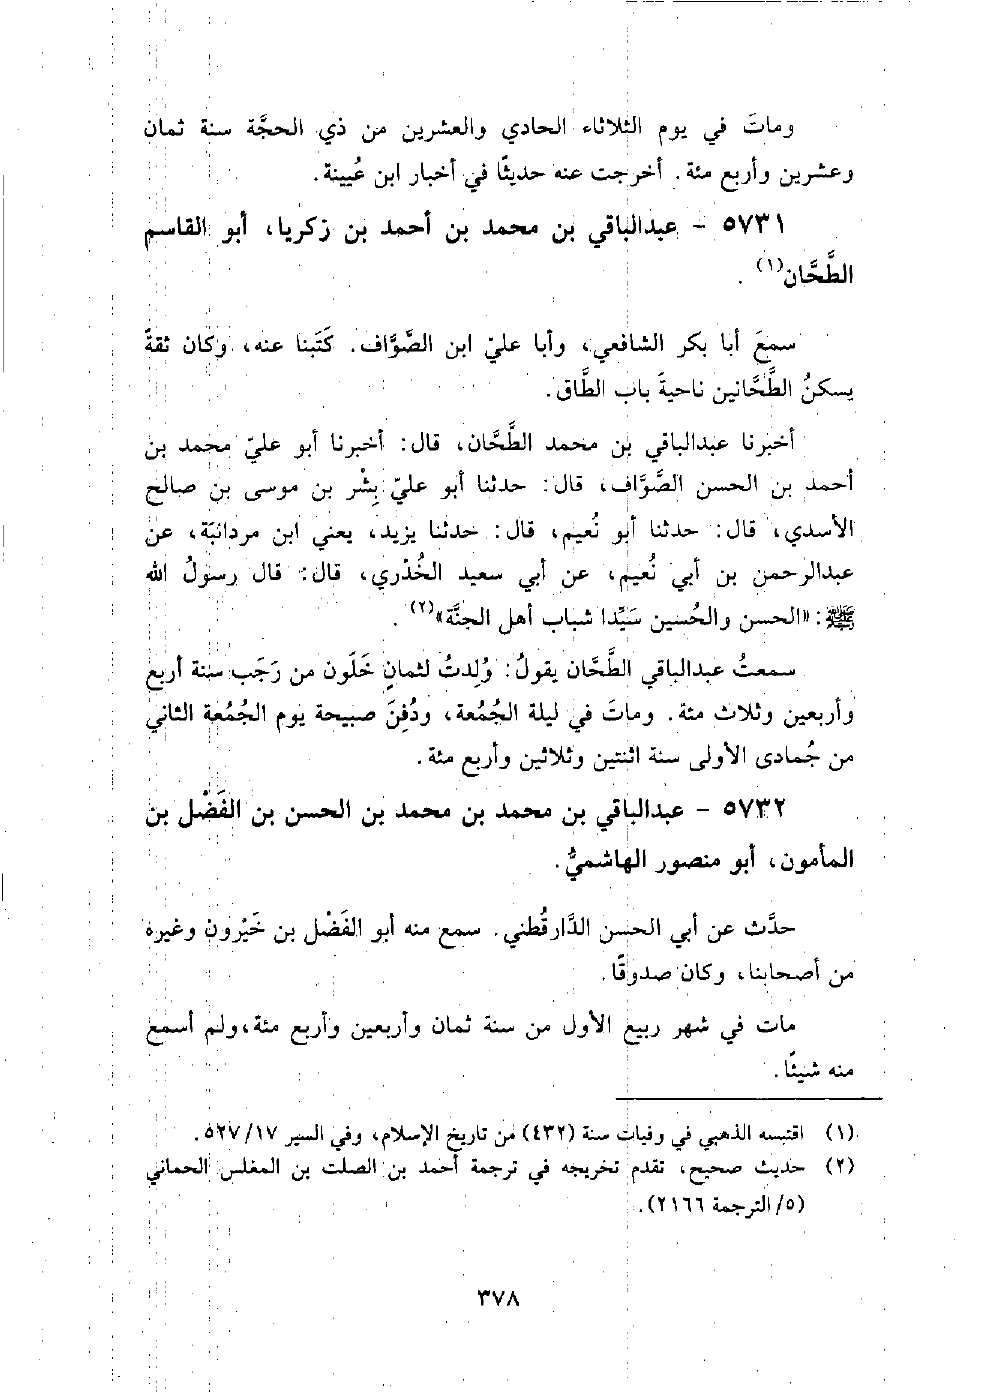 وماتَ في يوم الثلاثاء الحادي والعشرين من ذي الحجَّة سنة ثمان
وعشرين وأربع مئة. أخرجت عنه حديثًا في أخبار ابن عُيينة.
٥٧٣١ - عبدالباقي بن محمد بن أحمد بن زكريا، أبو القاسم
الطَّحَّان(١).
سمعَ أبا بكر الشافعي، وأبا عليّ ابن الصَّوَّاف. كَتَبنا عنه، وكان ثقةً
يسكنُ الطَّحَّانين ناحيةَ باب الطَّاق.
أخبرنا عبدالباقي بن محمد الطَّحَّان، قال: أخبرنا أبو عليّ محمد بن
أحمد بن الحسن الصَّوَّاف، قال: حدثنا أبو عليّ بِشْر بن موسى بن صالح
الأسدي، قال: حدثنا أبو نُعيم، قال: حدثنا يزيد، يعني ابن مردانبَة، عن
عبدالرحمن بن أبي نُعيم، عن أبي سعيد الخُدْري، قال: قال رسولُ الله
ﷺ: «الحسن والحُسين سَيِّدا شباب أهل الجنَّة»(٢).
سمعتُ عبدالباقي الطَّحَّان يقولُ: وُلِدتُ لثمانٍ خَلَون من رَجَب سنة أربع
وأربعين وثلاث مئة. وماتَ في ليلة الجُمُعة، ودُفِنَ صبيحة يوم الجُمُعة الثاني
من جُمادى الأولى سنة اثنتين وثلاثين وأربع مئة.
٥٧٣٢ - عبدالباقي بن محمد بن محمد بن الحسن بن الفَضْل بن
المأمون، أبو منصور الهاشميُّ.
حدَّث عن أبي الحسن الدَّارقُطني. سمع منه أبو الفَضْل بن خَيْرون وغيره
من أصحابنا، وكان صدوقًا.
مات في شهر ربيع الأول من سنة ثمان وأربعين وأربع مئة، ولم أسمع
منه شيئًا.
(١) اقتبسه الذهبي في وفيات سنة (٤٣٢) من تاريخ الإسلام، وفي السير ١٧/ ٥٢٧.
(٢) حديث صحيح، تقدم تخريجه في ترجمة أحمد بن الصلت بن المغلس الحماني
(٥/ الترجمة ٢١٦٦).
٣٧٨